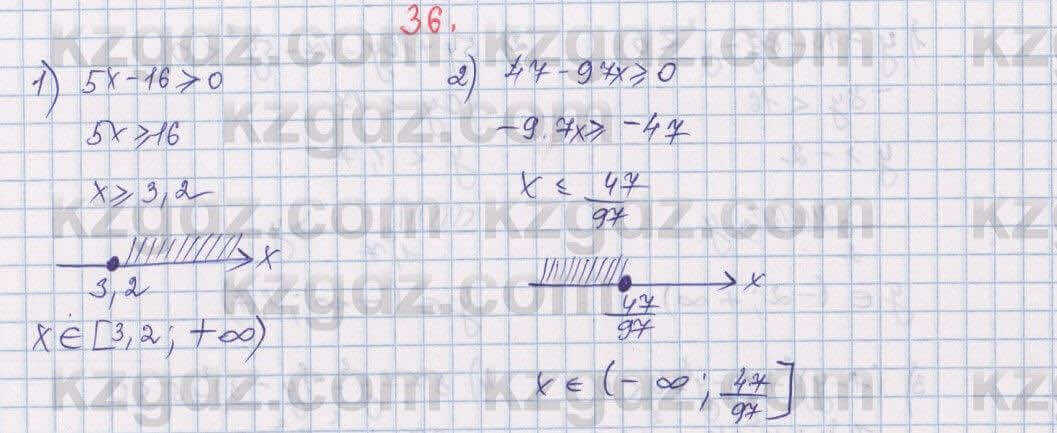 36.
1) 5x - 16 ⩾ 0
5x ⩾ 16
x ⩾ 3,2
x
3,2
x ∈ [3,2; +∞)
2) 47 - 97x ⩾ 0
-9.7x ⩾ -47
x ⩽ 47/97
x
47/97
x ∈ (-∞; 47/97]
kzgdz.com kzgdz.com kz
kzgdz.com
kzgdz.com kzgdz.com kz
kzgdz.com
kzgdz.com kzgdz.com kz